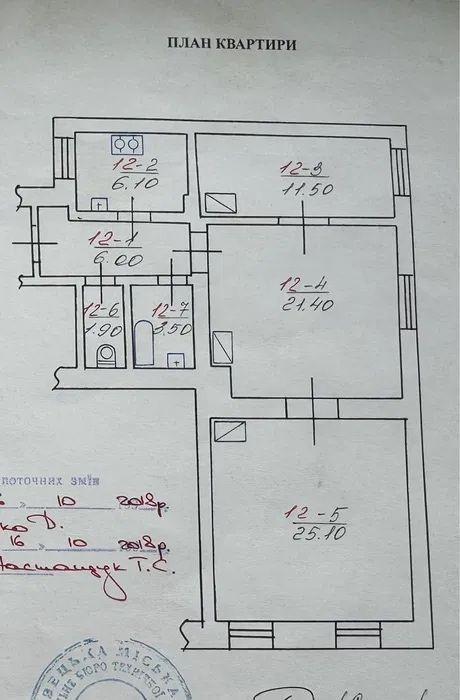 ПЛАН КВАРТИРИ
12-2
6.10
12-3
11.50
12-1
6.00
12-4
21.40
12-6
1.90
12-7
3.50
12-5
25.10
поточних змін
10 2018р.
ко Д.
16 » 10 2018р.
Т.С.
ВЕЦЬКА МІСЬКА
БЮРО ТЕХНІ